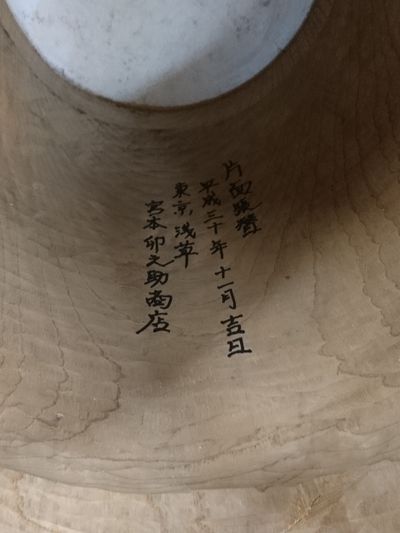 片面張替
平成三十年十一月吉日
東京浅草
宮本卯之助商店